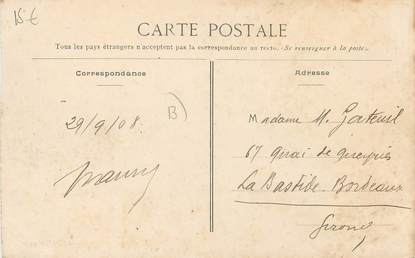 15€
CARTE POSTALE
Tous les pays étrangers n'acceptent pas la correspondance au recto. (Se renseigner à la poste).
Correspondance
Adresse
29/9/08.
B)
Madame M. Gateuil
67 quai de queyries
La Bastide-Bordeaux
Gironde